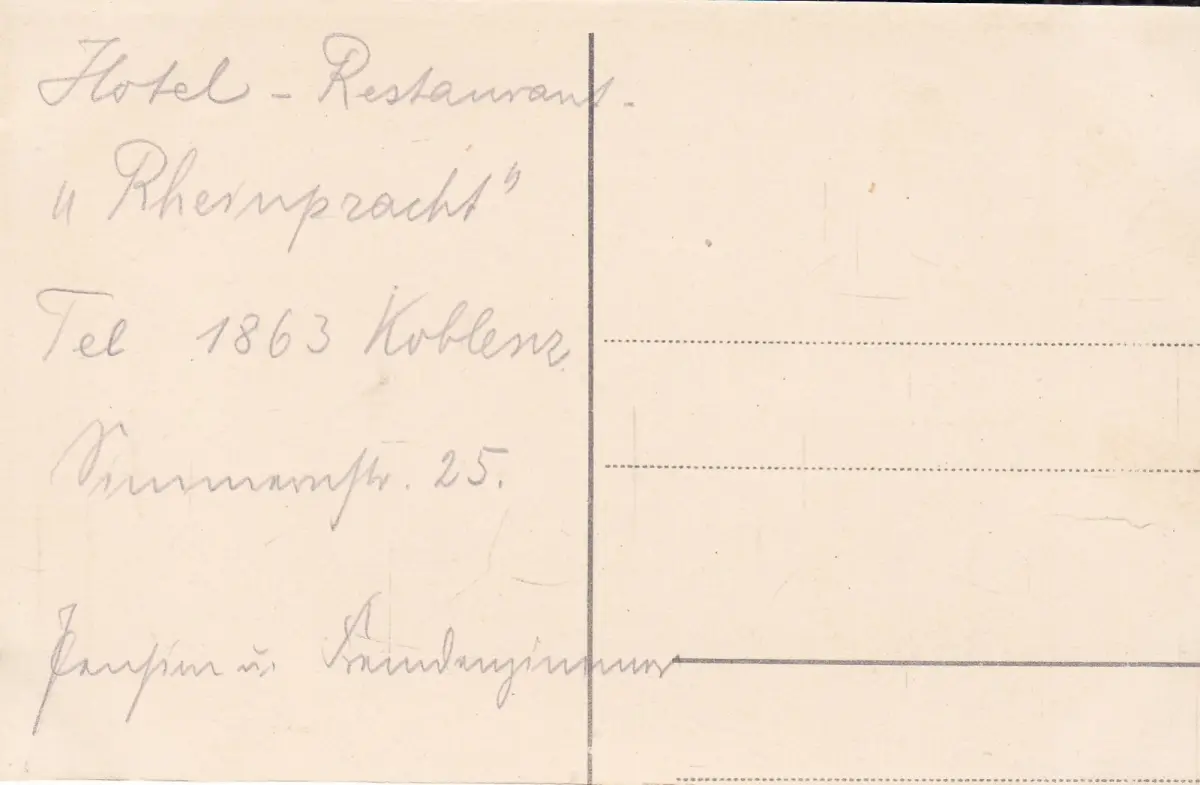 Hotel - Restaurant -
„ Rheinpracht "
Tel 1863 Koblenz
Simmernstr. 25.
Pension u. Fremdenzimmer